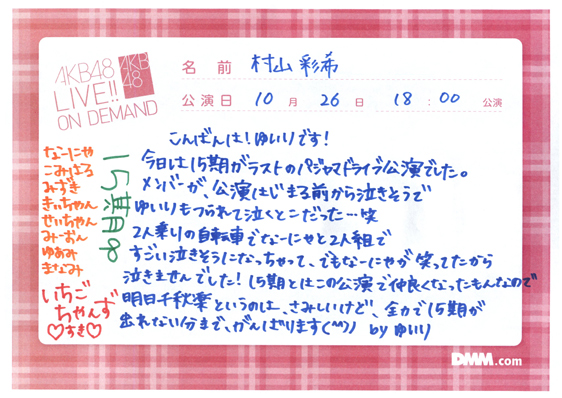 AKB48
LIVE!!
ON DEMAND
AKB
48
名前 村山彩希
公演日 10月26日 18:00公演
こんばんは!ゆいりです!
今日は15期がラストのパジャマドライブ公演でした。
メンバーが、公演はじまる前から泣きそうで
ゆいりもつられて泣くとこだった…笑
2人乗りの自転車でなーにゃと2人組で
すごい泣きそうになっちゃって、でもなーにゃが笑ってたから
泣きませんでした!15期とはこの公演で仲良くなったもんなので
明日千秋楽というのは、さみしいけど、全力で15期が
出れない分まで、がんばります(^^)/ byゆいり
15期め
なーにゃ
こみはる
みずき
きぃちゃん
せいちゃん
みーおん
ゆあみ
まなみ
いちご
ちゃんず
♡すき♡
DMM.com